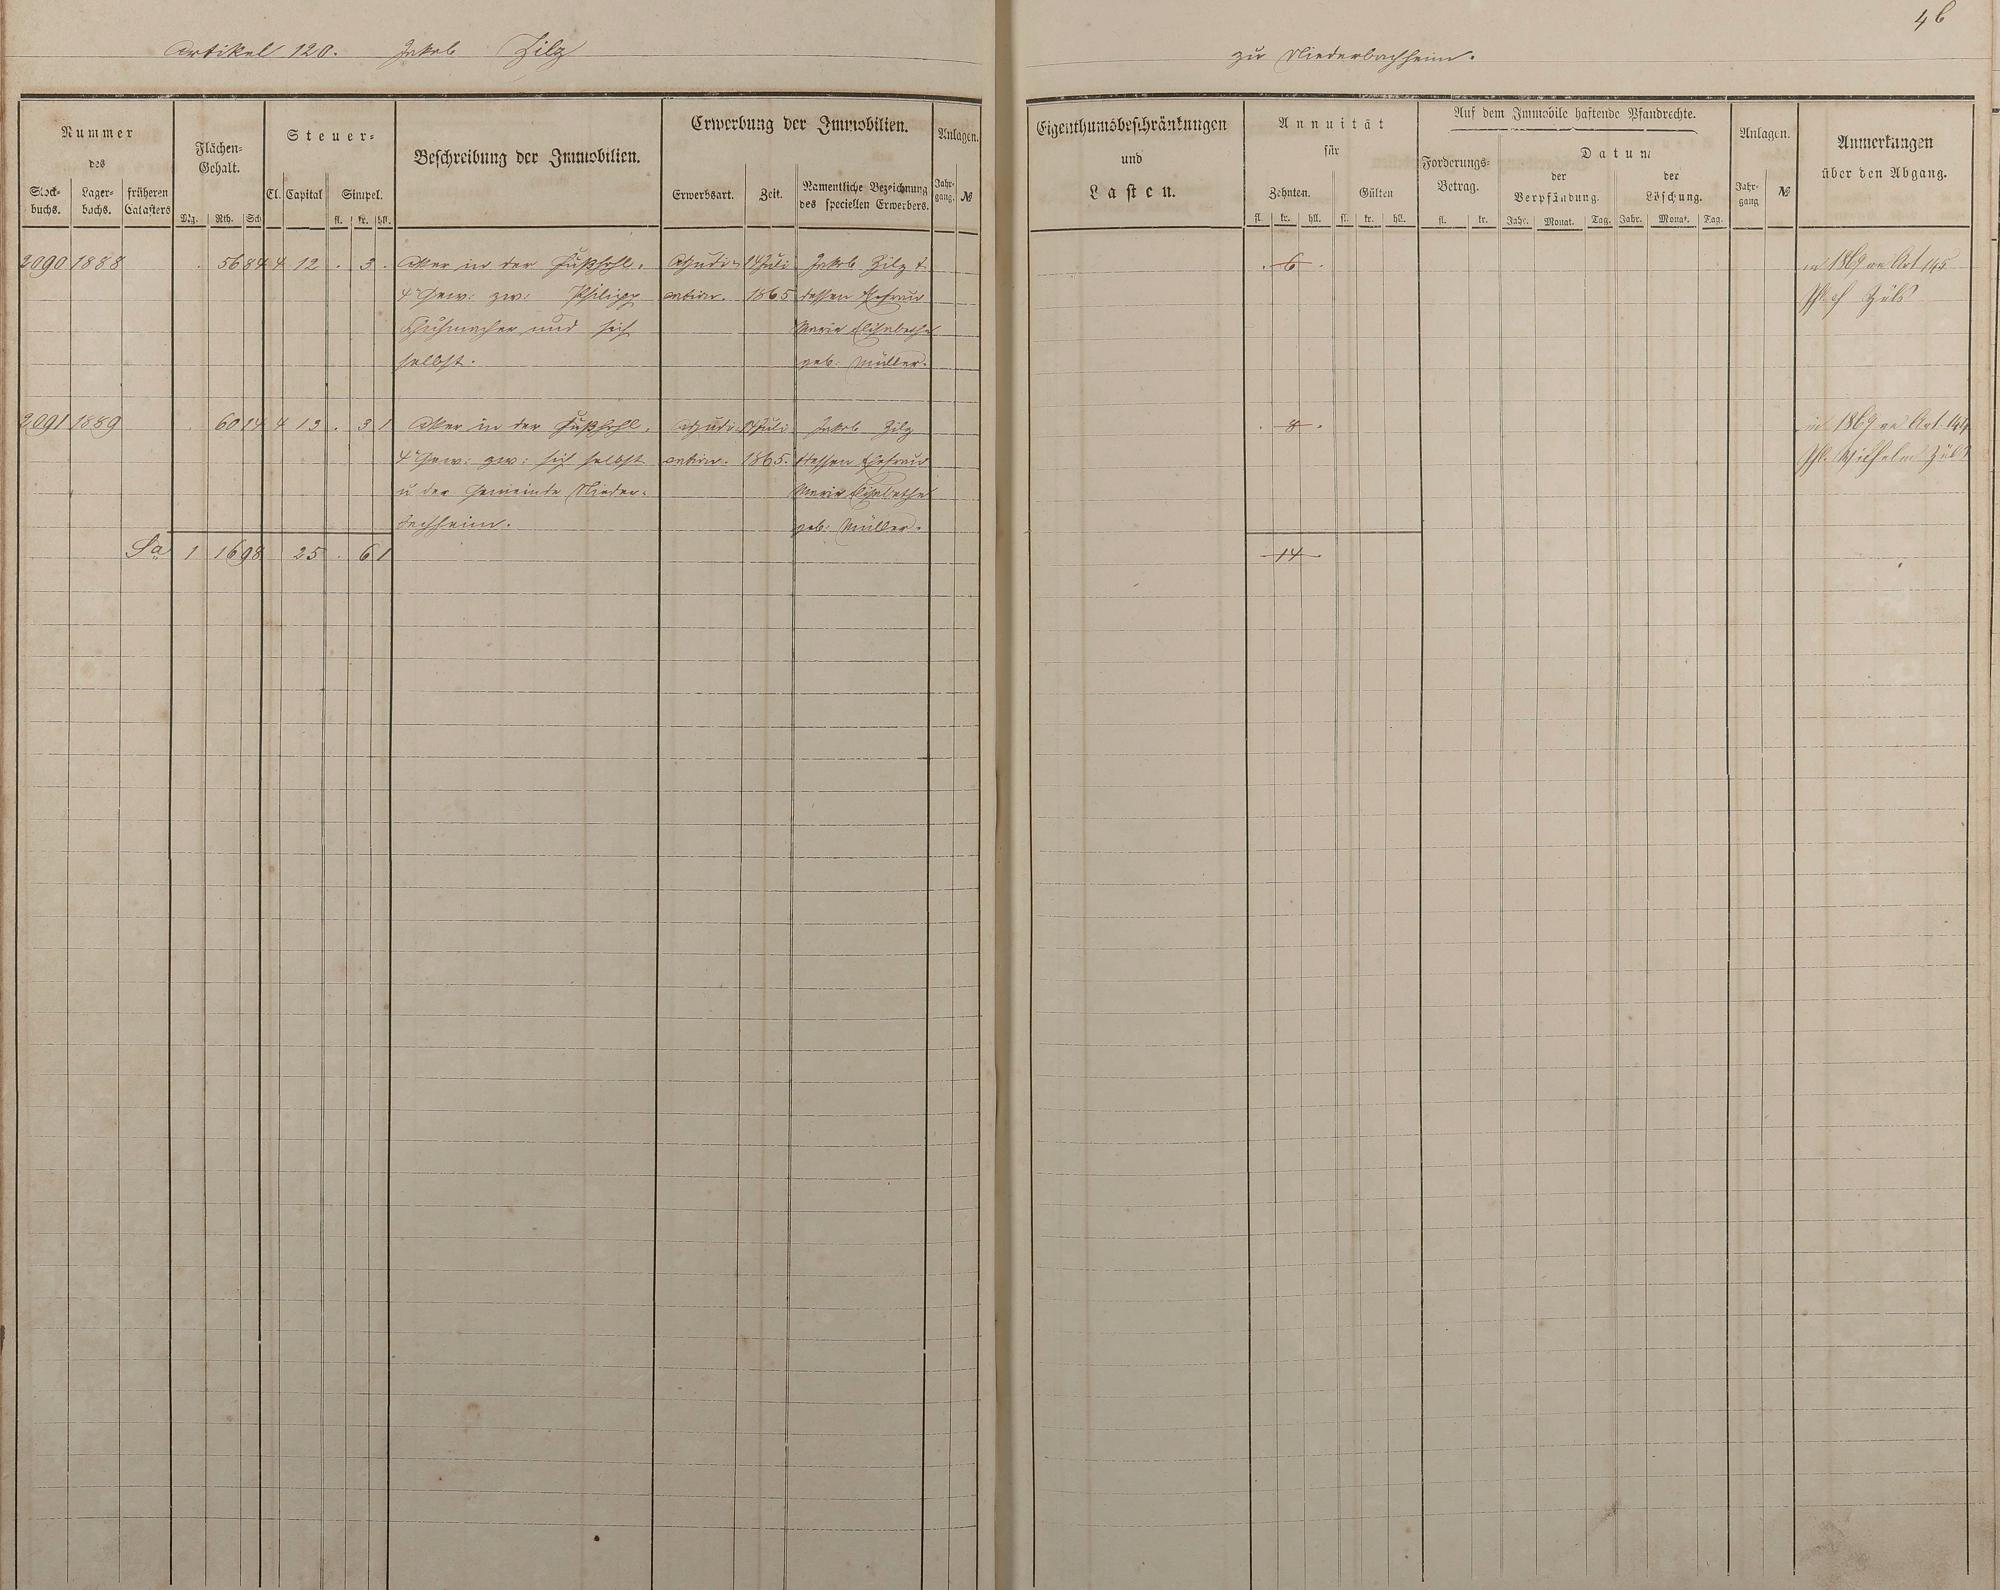 46
Artikel 120. Jakob Zilz
zu Niederbachheim.
Nummer
des
Stock-
buchs.
Lager-
buchs.
früheren
Catasters
Flächen-
Gehalt.
Mg. Rth. Sch.
Steuer-
Cl. Capital Simpel.
fl. kr. hll.
Beschreibung der Immobilien.
Erwerbung der Immobilien.
Erwerbsart. Zeit.
Namentliche Bezeichnung
des speciellen Erwerbers.
Anlagen.
Jahr-
gang. №
Eigenthumsbeschränkungen
und
Lasten.
Annuität
für
Zehnten. Gülten
fl. kr. hll. fl. kr. hll.
Auf dem Immobile haftende Pfandrechte.
Forderungs-
Betrag.
fl. kr.
Datum
der
Verpfändung.
Jahr. Monat. Tag.
der
Löschung.
Jahr. Monat. Tag.
Anlagen.
Jahr-
gang №
Anmerkungen
über den Abgang.
2090 1888 . 56 84 4 12 . 3 . Acker in der Fußhohl, Adjudi- 14 Juli Jakob Zilz &
4r Gew: zw: Philipp cation. 1865 dessen Ehefrau
Schuhmacher und sich Maria Elisabetha
selbst. geb. Müller.
. 6 .
in 1869 an Art 145
2091 1889 . 60 14 4 13 . 3 1 Acker in der Fußhohl, Adjudi- 14 Juli Jakob Zilz
4r Gew: zw: sich selbst cation. 1865. dessen Ehefrau
u der Gemeinde Nieder- Maria Elisabetha
bachheim. geb: Müller.
. 8 .
in 1869 an Art. 144
Sa 1 16 98 25 . 6 1
14